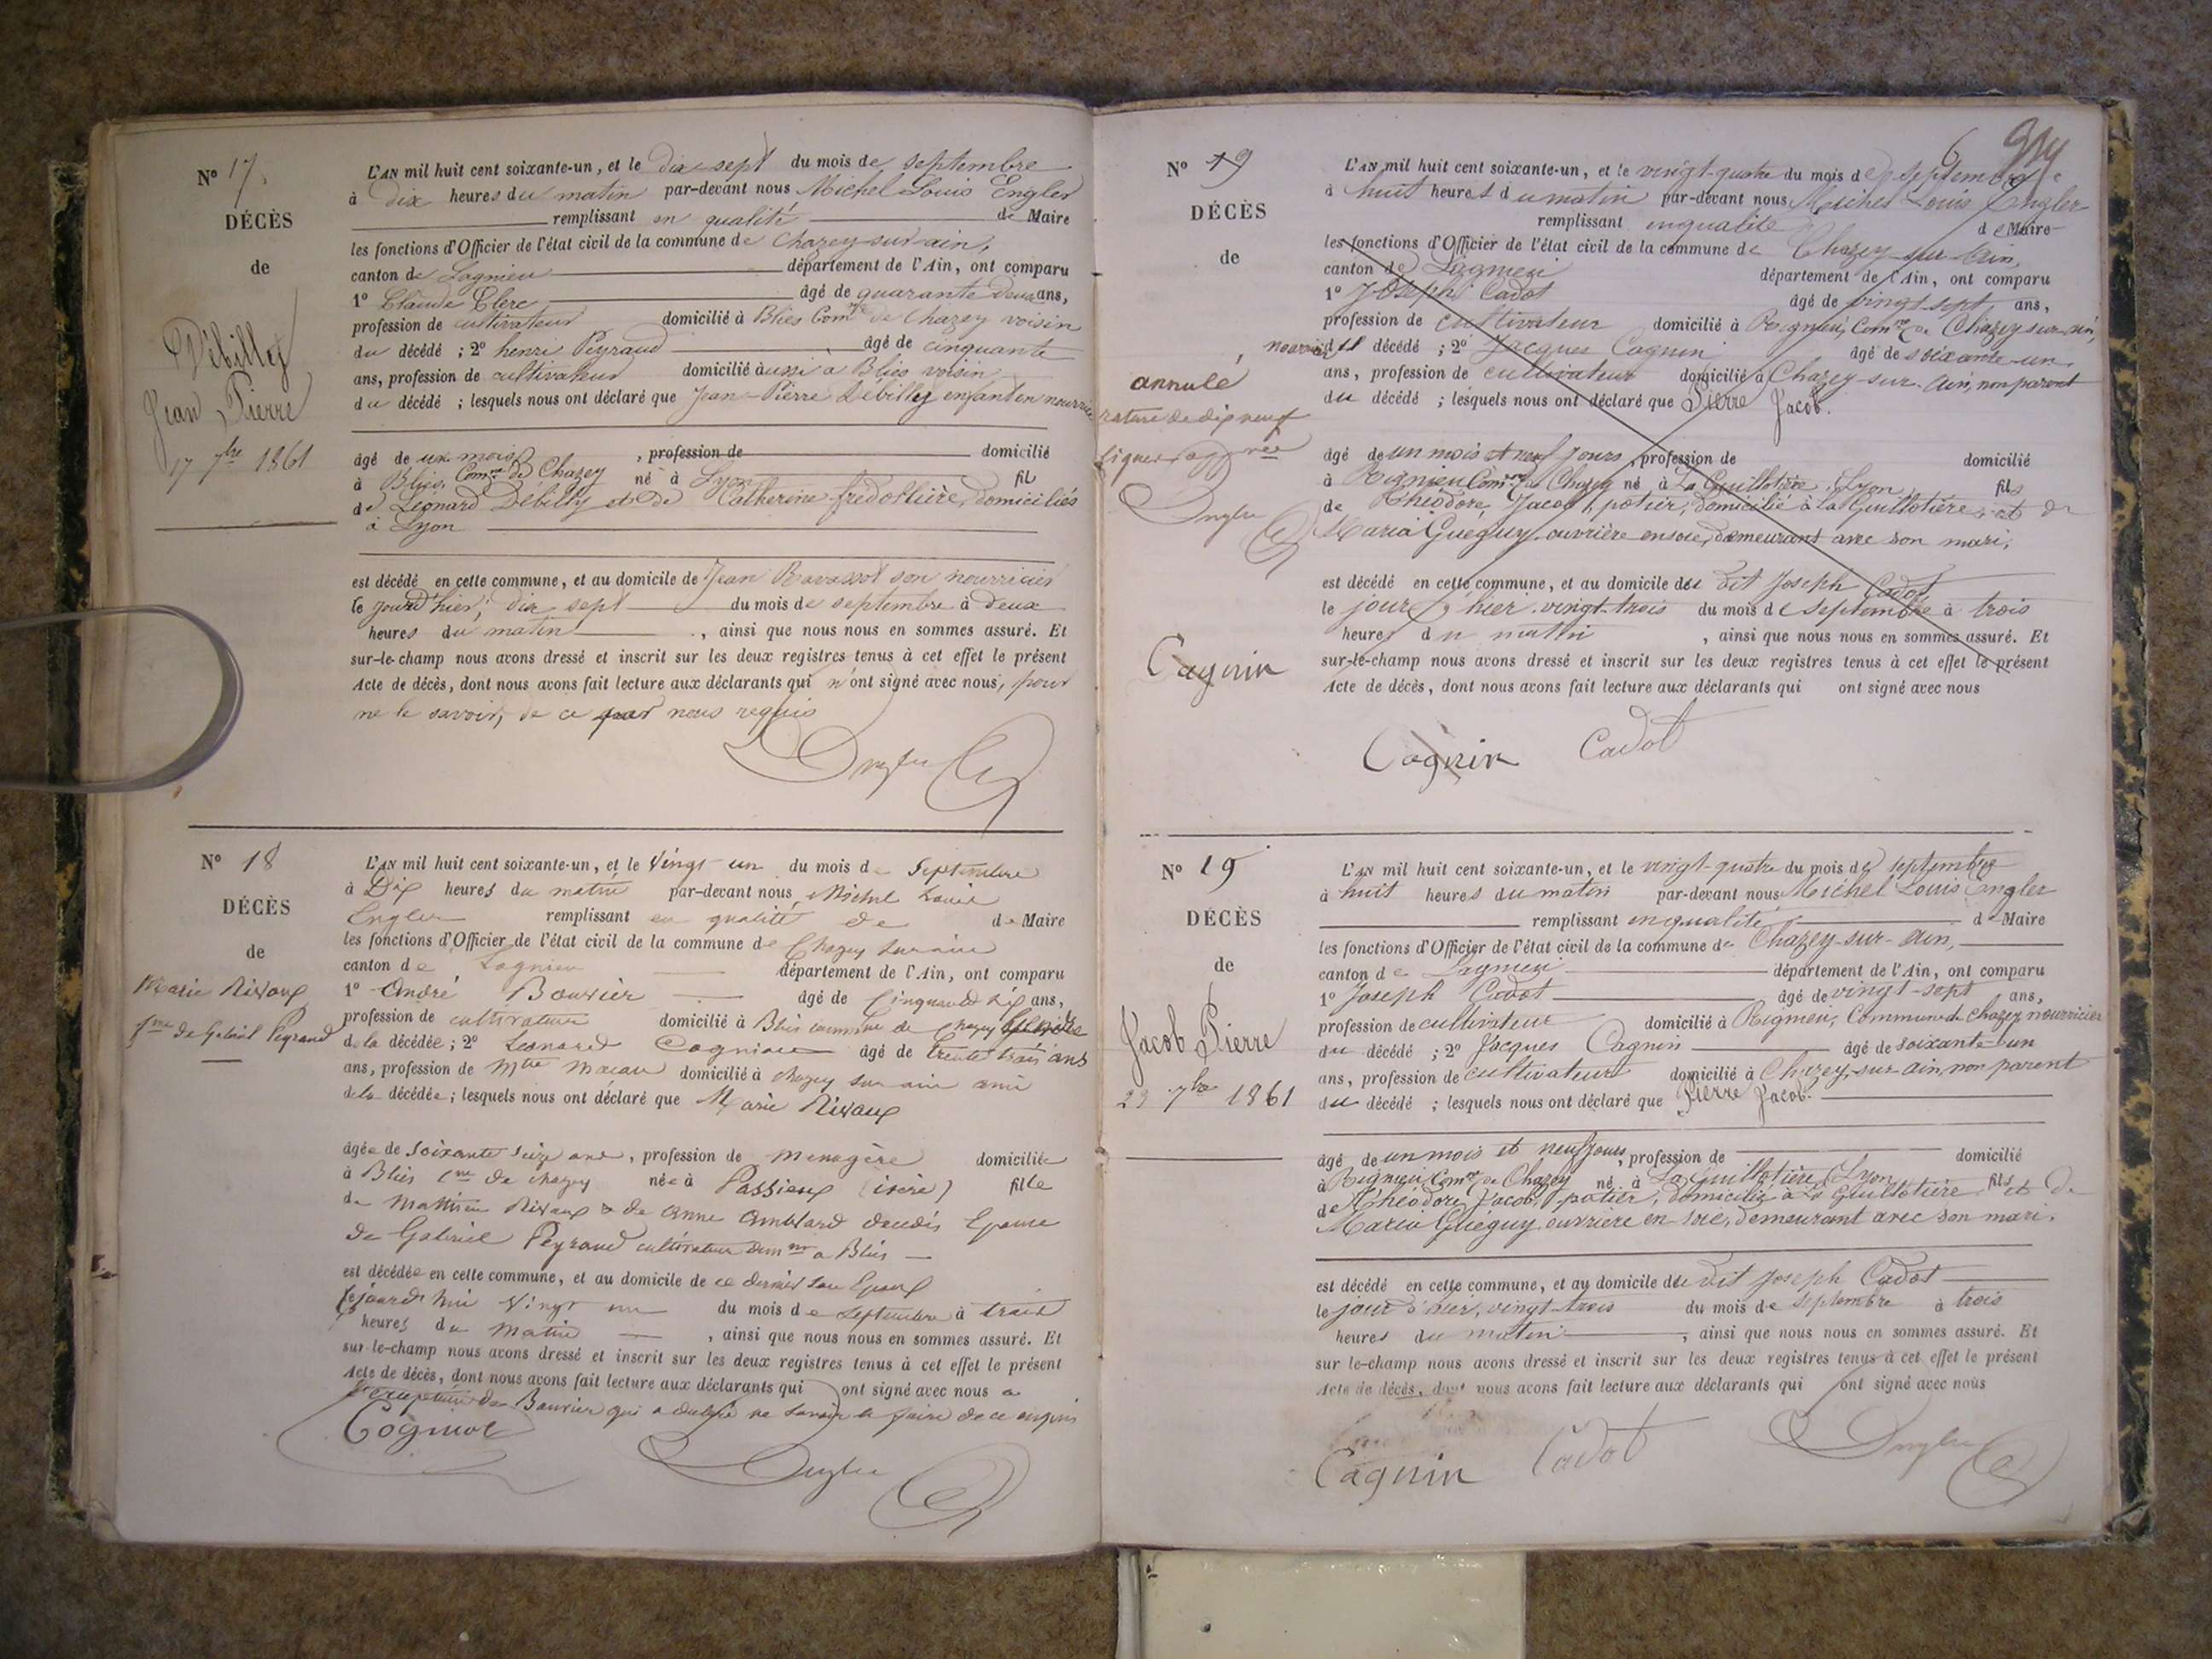 N° 17.
DÉCÈS
de
Débilly
Jean Pierre
17 7bre 1861
L'AN mil huit cent soixante-un, et le dix sept du mois de septembre
à dix heures du matin par-devant nous Michel Louis Engler
remplissant en qualité de Maire
les fonctions d'Officier de l'état civil de la commune de Chazey-sur-ain,
canton de Lagnieu département de l'Ain, ont comparu
1° Claude Clerc âgé de quarante deux ans,
profession de cultivateur domicilié à Blies Comne de Chazey voisin
du décédé ; 2° henri Peyraud âgé de cinquante
ans, profession de cultivateur domicilié aussi à Blies voisin
du décédé ; lesquels nous ont déclaré que Jean-Pierre Débilly enfant en nourrice
âgé de mois, profession de domicilié
à Blies, Comne de Chazey né à Lyon fil
de Léonard Débilly et de Catherine fredottière, domiciliés
à Lyon
est décédé en cette commune, et au domicile de Jean Ravassot son nourricier
le jourd'hier, dix sept du mois de septembre à deux
heures du matin, ainsi que nous nous en sommes assuré. Et
sur-le-champ nous avons dressé et inscrit sur les deux registres tenus à cet effet le présent
Acte de décès, dont nous avons fait lecture aux déclarants qui n'ont signé avec nous, pour
ne le savoir, de ce nous requis
Engler
N° 18
DÉCÈS
de
Marie Rivaux
fme de Gabriel Peyraud
L'AN mil huit cent soixante-un, et le Vingt un du mois de Septembre
à Dix heures du matin par-devant nous Michel Louis
Engler remplissant en qualité de de Maire
les fonctions d'Officier de l'état civil de la commune de Chazey sur ain
canton de Lagnieu département de l'Ain, ont comparu
1° André Bouvier âgé de Cinquante dix ans,
profession de cultivateur domicilié à Blies commune de Chazey
de la décédée ; 2° Léonard Cogniou âgé de trente trois ans
ans, profession de Mtre Macon domicilié à Chazey sur ain ami
de la décédée ; lesquels nous ont déclaré que Marie Rivaux
âgée de soixante seize ans, profession de menagère domiciliée
à Blies Cne de Chazey née à Passieux (isère) fille
de Mathieu Rivaux & de Anne Amblard décédés Epouse
de Gabriel Peyraud cultivateur demnt a Blies
est décédée en cette commune, et au domicile de ce dernier son Epoux
lejourd'hui Vingt un du mois de Septembre à trois
heures du Matin, ainsi que nous nous en sommes assuré. Et
sur-le-champ nous avons dressé et inscrit sur les deux registres tenus à cet effet le présent
Acte de décès, dont nous avons fait lecture aux déclarants qui ont signé avec nous a
l'exception de Bouvier qui a déclaré ne savoir le faire de ce enquis
Engler
N° 19
DÉCÈS
de
annulé
rature de dix neuf
lignes appvée
Engler
Cagnin
L'AN mil huit cent soixante-un, et le vingt-quatre du mois de septembre
à huit heures du matin par-devant nous Michel Louis Engler
remplissant en qualité de Maire
les fonctions d'Officier de l'état civil de la commune de Chazey-sur-Ain,
canton de Lagnieu département de l'Ain, ont comparu
1° Joseph Cadot âgé de vingt-sept ans,
profession de cultivateur domicilié à Rignieu, Comne de Chazey-sur-ain,
nourricier du décédé ; 2° Jacques Cagnin âgé de soixante-un
ans, profession de cultivateur domicilié à Chazey-sur-Ain, non parent
du décédé ; lesquels nous ont déclaré que Pierre Jacob.
âgé de un mois et neuf jours, profession de domicilié
à Rignieu Comne de Chazey né à La Guillotière, Lyon, fils
de Théodore Jacob, potier, domicilié à La Guillotière, et de
Maria Guéguy ouvrière en soie, demeurant avec son mari,
est décédé en cette commune, et au domicile du dit Joseph Cadot
le jour d'hier vingt-trois du mois de septembre à trois
heures du matin, ainsi que nous nous en sommes assuré. Et
sur-le-champ nous avons dressé et inscrit sur les deux registres tenus à cet effet le présent
Acte de décès, dont nous avons fait lecture aux déclarants qui ont signé avec nous
Cagnin Cadot
N° 19
DÉCÈS
de
Jacob Pierre
23 7bre 1861
L'AN mil huit cent soixante-un, et le vingt-quatre du mois de septembre
à huit heures du matin par-devant nous Michel Louis Engler
remplissant en qualité de Maire
les fonctions d'Officier de l'état civil de la commune de Chazey-sur-Ain,
canton de Lagnieu département de l'Ain, ont comparu
1° Joseph Cadot âgé de vingt-sept ans,
profession de cultivateur domicilié à Rignieu, Commune de Chazey nourricier
du décédé ; 2° Jacques Cagnin âgé de soixante-un
ans, profession de cultivateur domicilié à Chazey-sur-ain, non parent
du décédé ; lesquels nous ont déclaré que Pierre Jacob.
âgé de un mois et neuf jours, profession de domicilié
à Rignieu Comne de Chazey né à La Guillotière, Lyon fils
de Théodore Jacob, potier, domicilié à La Guillotière et de
Maria Guéguy ouvrière en soie, demeurant avec son mari.
est décédé en cette commune, et au domicile du dit Joseph Cadot
le jour d'hier, vingt-trois du mois de septembre à trois
heures du matin, ainsi que nous nous en sommes assuré. Et
sur le-champ nous avons dressé et inscrit sur les deux registres tenus à cet effet le présent
Acte de décès, dont nous avons fait lecture aux déclarants qui ont signé avec nous
Cagnin Cadot Engler